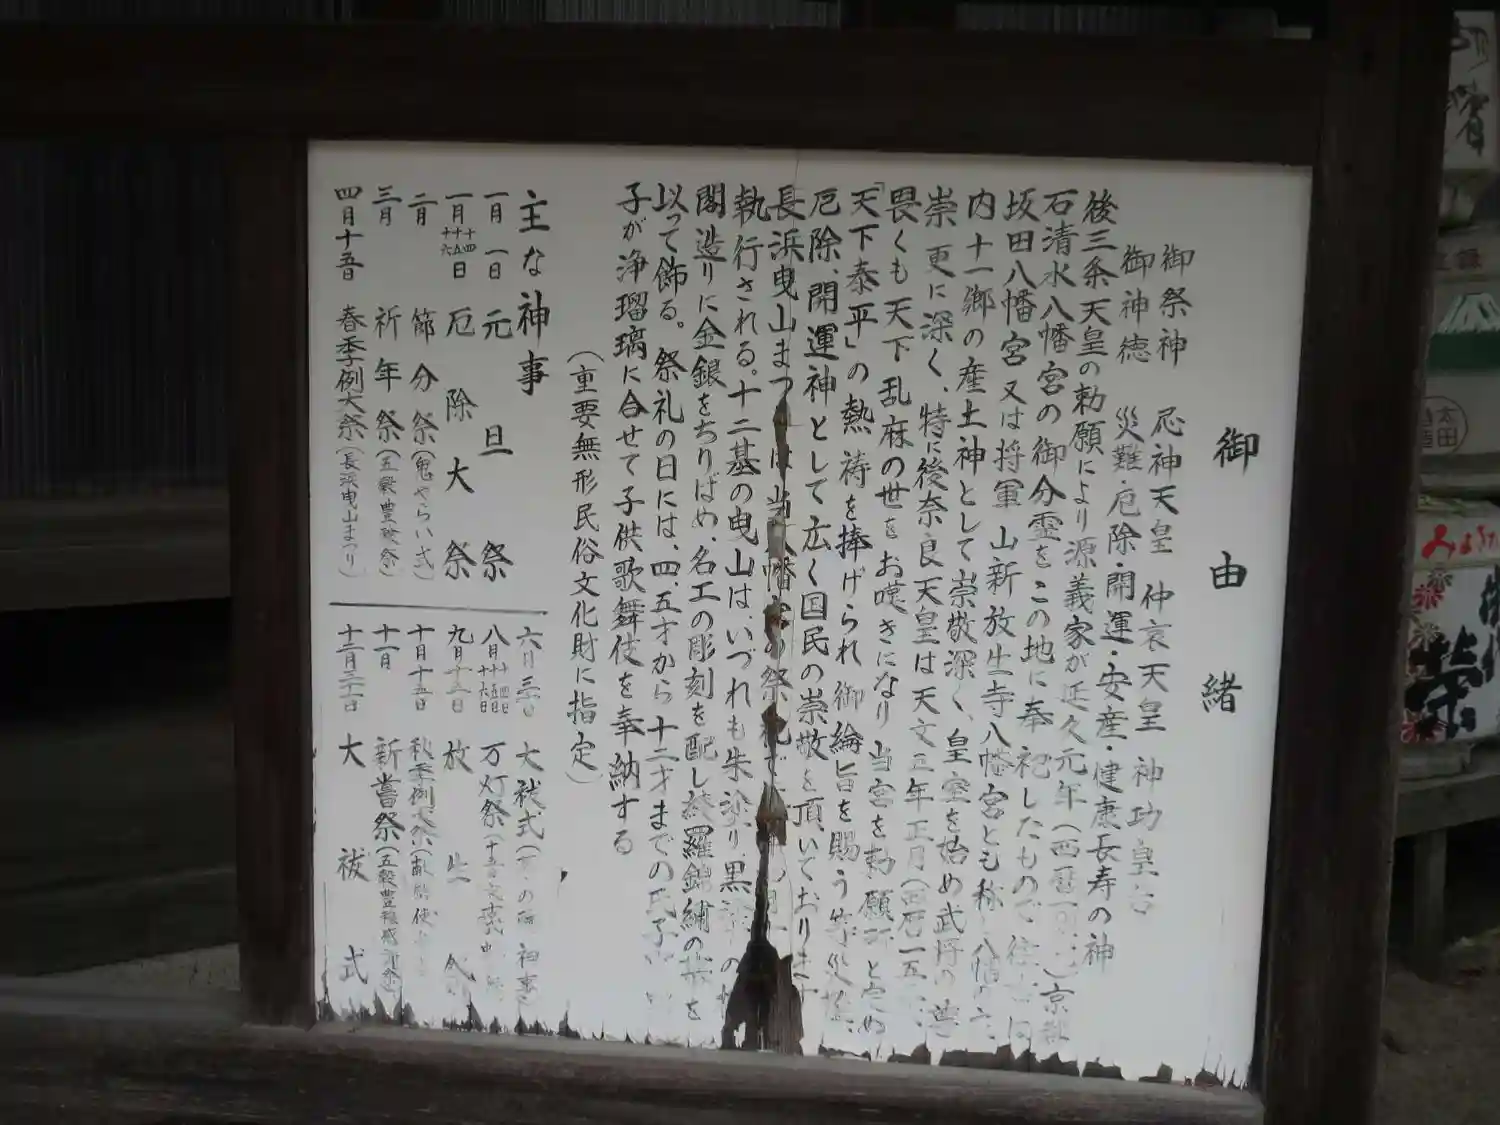 御由緒
御祭神 応神天皇 仲哀天皇 神功皇后
御神徳 災難・厄除・開運・安産・健康長寿の神
後三条天皇の勅願により源義家が延久元年(西暦一〇)京都
石清水八幡宮の御分霊をこの地に奉祀したもので
坂田八幡宮又は将軍山新放生寺八幡宮とも称
内十一郷の産土神として崇敬深く、皇室を始め武将の尊
崇更に深く、特に後奈良天皇は天文三年正月(西暦一五
畏くも天下乱麻の世をお嘆きになり当宮を勅願所と定め
「天下泰平」の熱祷を捧げられ御綸旨を賜う
厄除、開運神として広く国民の崇敬を頂いております
長浜曳山まつりは当八幡宮の祭礼で
執行される。十二基の曳山は、いづれも朱塗り、黒塗の
閣造りに金銀をちりばめ、名工の彫刻を配し綾羅錦繍の
を
以って飾る。祭礼の日には、四、五才から十二才までの氏子
子が浄瑠璃に合せて子供歌舞伎を奉納する
(重要無形民俗文化財に指定)
主な神事
一月一日 元旦祭
一月十四十五十六日 厄除大祭
二月 節分祭(鬼やらい式)
三月 祈年祭(五穀豊穣祭)
四月十五日 春季例大祭(長浜曳山まつり)
六月三十日 大祓式
八月 万灯祭
九月十五日 放生会
十月十五日 秋季例大祭
十一月 新嘗祭(五穀豊穣感謝祭)
十二月三十一日 大祓式
太田